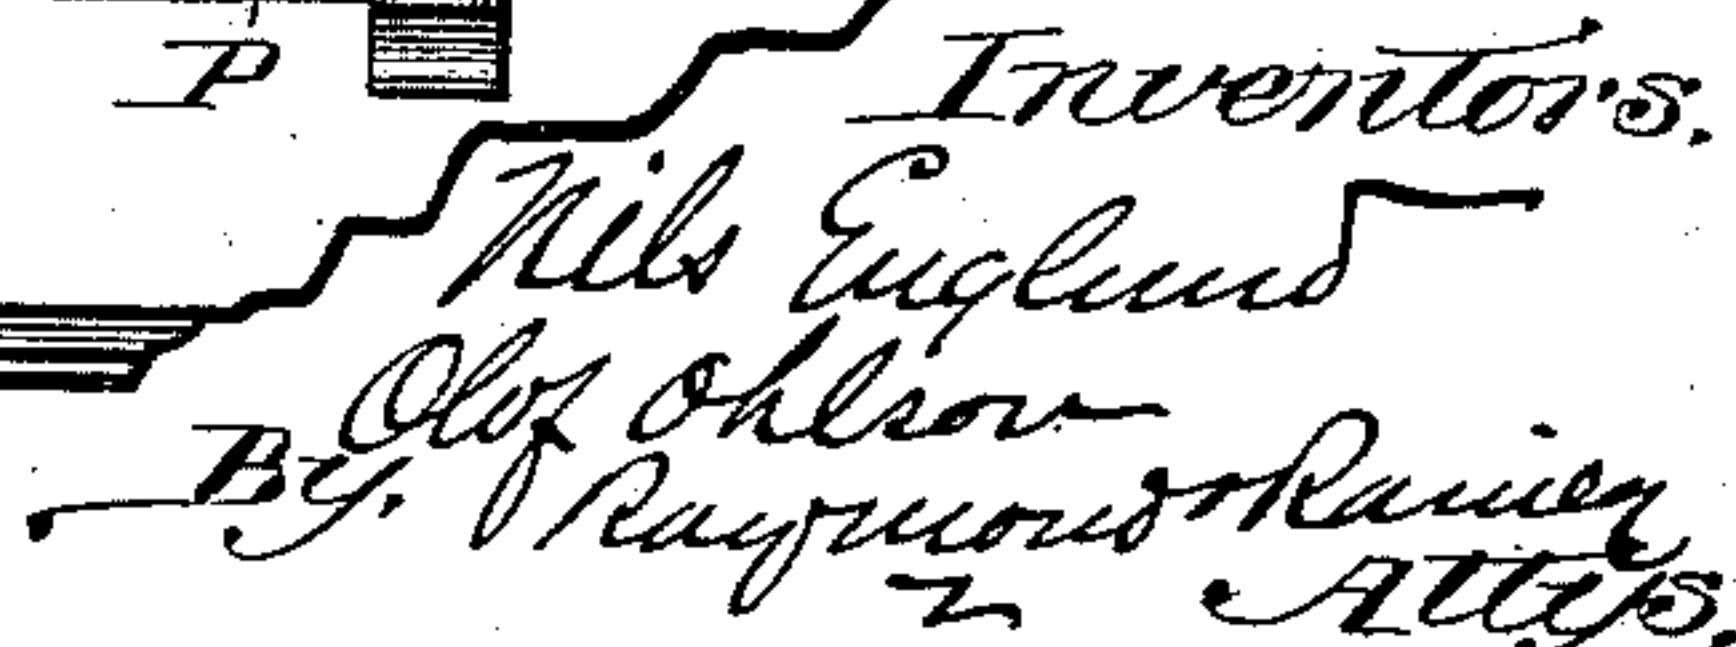 P
Inventors.
Nils Englund
Olof Ohlson
By. Raymond
Attys.